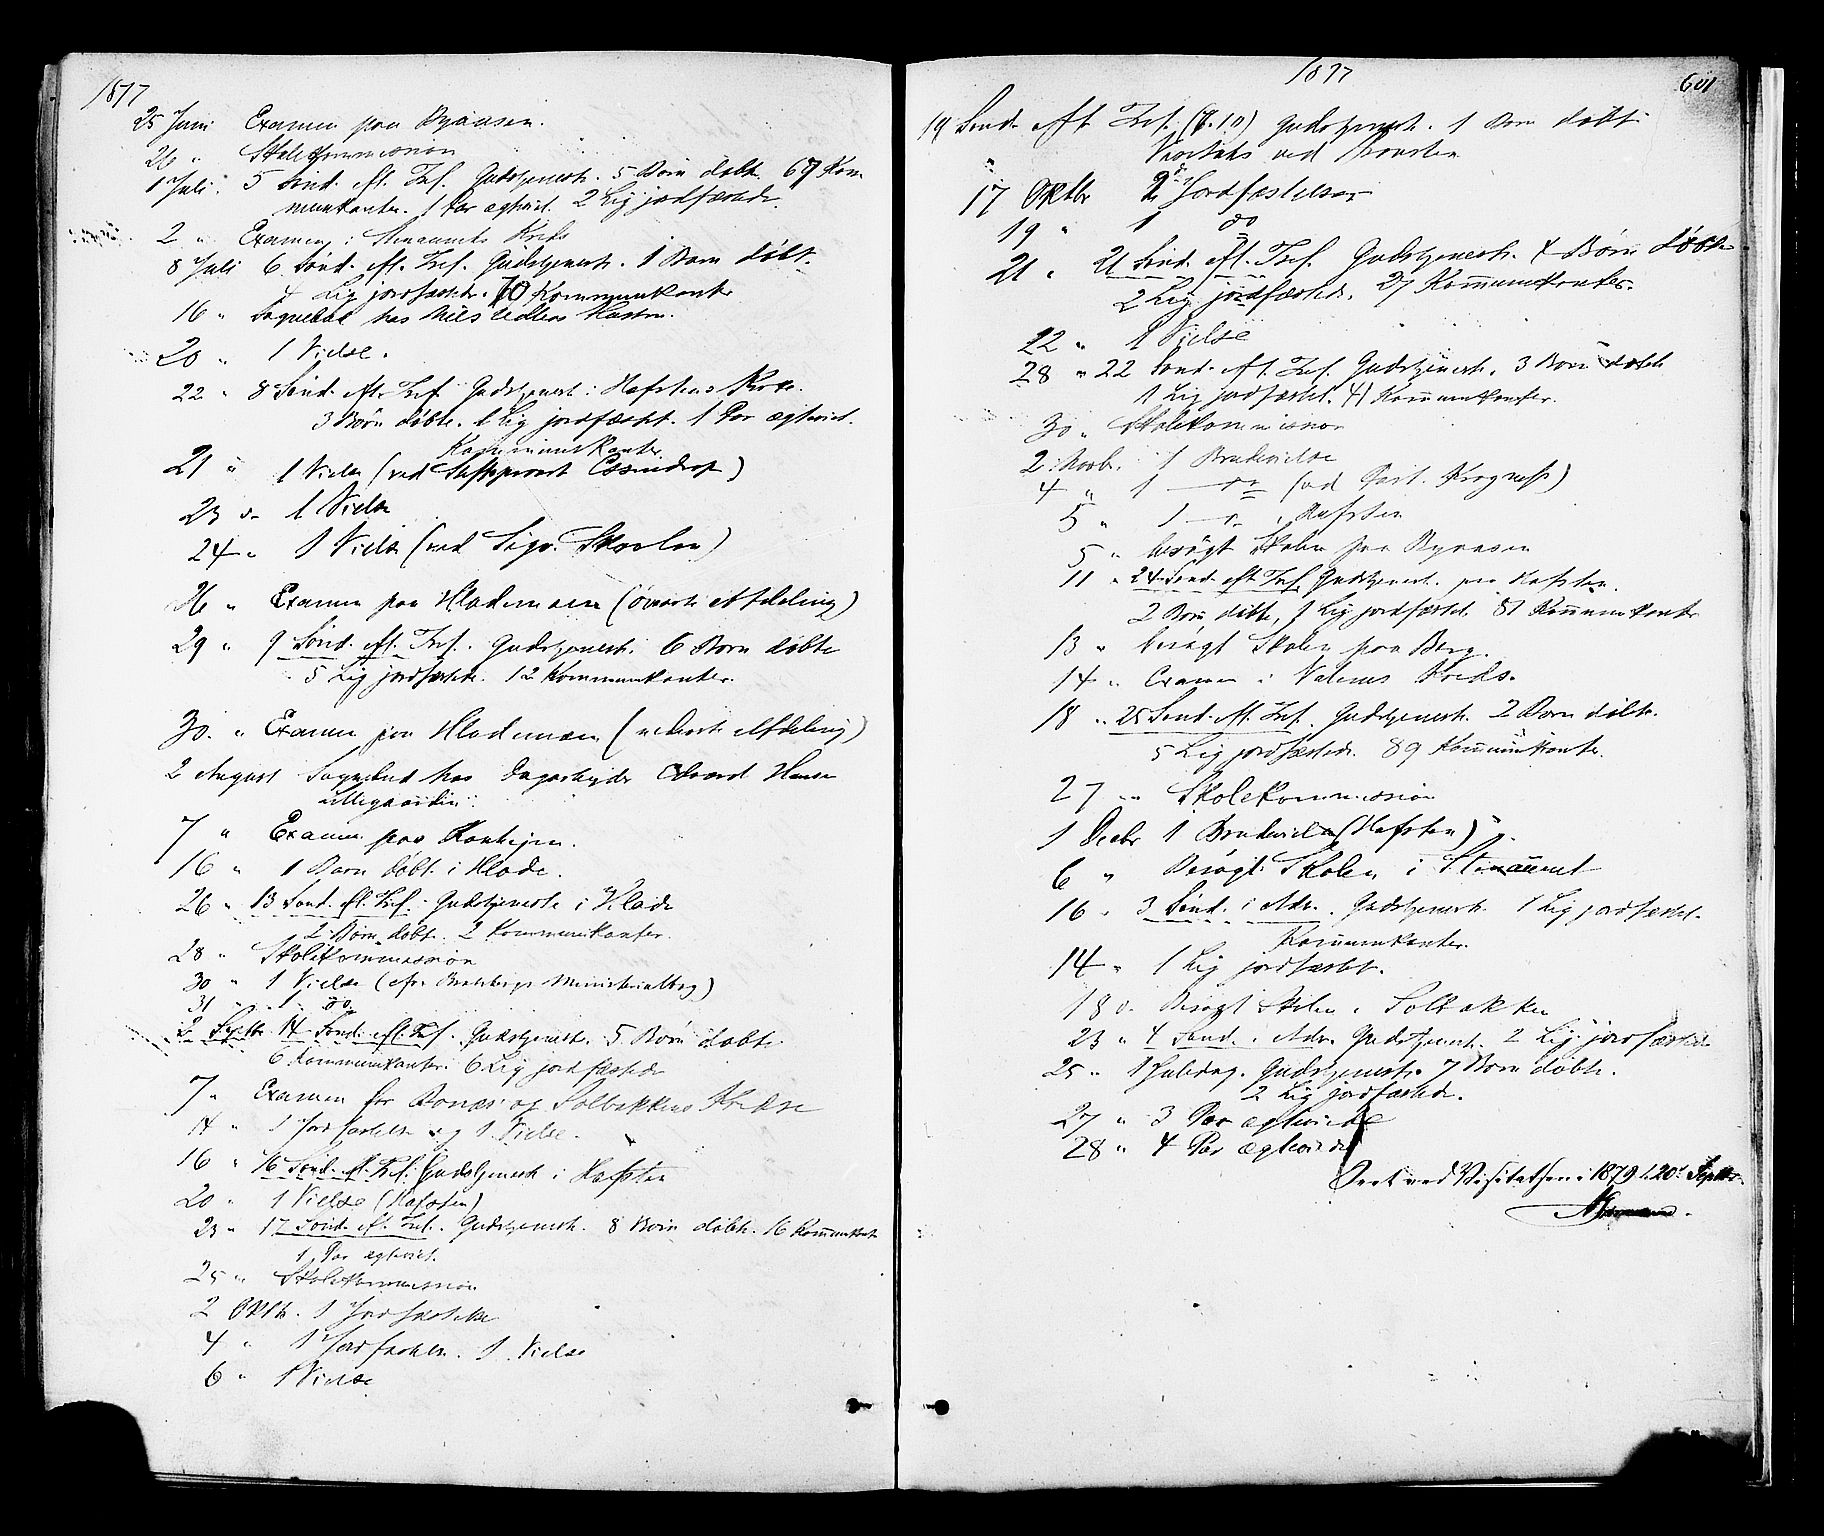 1877
25 Juni Examen paa Byaasen.
26 " Skolekommission
1 Juli. 5 Sønd. eft. Tref. Gudstjeneste. 5 Børn døbte. 67 Kom
munikanter. 1 Par ægteviet. 2 Lig jordfæstede.
2 " Examen i Kreds
8 Juli 6 Sønd. eft. Tref. Gudstjeneste. 1 Barn døbt.
4 Lig jordfæstede. 70 Kommunikanter
16 " Sognebud hos Nils
20 " 1 Vielse.
22 " 8 Sønd. eft. Tref. Gudstjenest i Hafstens Kirke.
3 Børn døbte. 1 Lig jordfæstet. 1 Par ægteviet.
Kommunikanter
21 " 1 Vielse (ved Stiftsprovst Essendrop)
23 " 1 Vielse
24 " 1 Vielse (ved Sogn.
26 " Examen paa Lademoen (øverste Afdeling)
29 " 9 Sønd. eft. Tref. Gudstjeneste. 6 Børn døbte
5 Lig jordfæstede. 12 Kommunikanter.
30. " Examen paa Lademoen (nederste Afdeling)
2 August Sognebud hos Dagarbeider Edvard Hansen
Lillegaarden
7 " Examen paa
16 " 1 Barn døbt i Lade.
26 " 13 Sønd. eft. Tref. Gudstjeneste i Lade
2 Børn døbte. 2 Kommunikanter.
28 " Skolekommission
30 " 1 Vielse (efr. Bratsbergs Ministerialbog)
31 " 1 do
2 Septbr. 14 Sønd. eft. Tref. Gudstjeneste. 5 Børn døbte
6 Kommunikanter. 6 Lig jordfæstede
7 " Examen for og Solbakkens Kredse
14 " 1 Jordfæstelse og 1 Vielse.
16 " 16 Sønd. eft. Tref. Gudstjeneste i Hafsten
20 " 1 Vielse (Hafsten)
23 " 17 Sønd. eft. Tref. Gudstjeneste. 8 Børn døbte. 16 Kommunikant
1 Par ægteviet.
25 " Skolekommission
2 Oktb. 1 Jordfæstelse
4 " 1 Jordfæstelse. 1 Vielse
6 " 1 Vielse
1877 601
19 Sønd. eft. Tref. (7.10) Gudstjeneste. 1 Barn døbt
ved
17 Oktbr 2 Jordfæstelser
19 " 1 do
21 " 21 Sønd. eft. Tref. Gudstjeneste. 4 Børn døbte
2 Lig jordfæstede. 27 Kommunikanter.
22 " 1 Vielse
28 " 22 Sønd. eft. Tref. Gudstjeneste. 3 Børn døbte
1 Lig jordfæstet. 41 Kommunikanter.
30 " Skolekommission
2 Novb. 1 Brudevielse
4 " 1 — do (ved Past. Krogness)
5 " 1 — do i Hafsten
5 " besøgt Skolen paa Byaasen
11 " 24 Sønd. eft. Tref. Gudstjeneste paa Hafsten.
2 Børn døbte, 1 Lig jordfæstet. 81 Kommunikanter
13 " besøgt Skolen paa Berg.
14 " Examen i Kreds.
18 " 25 Sønd. eft. Tref. Gudstjeneste. 2 Børn døbte.
5 Lig jordfæstede. 89 Kommunikanter.
27 " Skolekommission
1 Decbr 1 Brudevielse (Hafsten)
6 " Besøgt Skolen i
16 " 3 Sønd. i Adv. Gudstjeneste. 1 Lig jordfæstet.
Kommunikanter.
14 " 1 Lig jordfæstet.
18 " Besøgt Skolen i Solbakken
23 " 4 Sønd. i Adv. Gudstjeneste. 2 Lig jordfæstede
25 " 1 Juledag. Gudstjeneste. 7 Børn døbte.
2 Lig jordfæstede.
27 " 3 Par ægteviede
28 " 4 Par ægteviede
Seet ved Visitatsen i 1879 d. 20de Septbr.